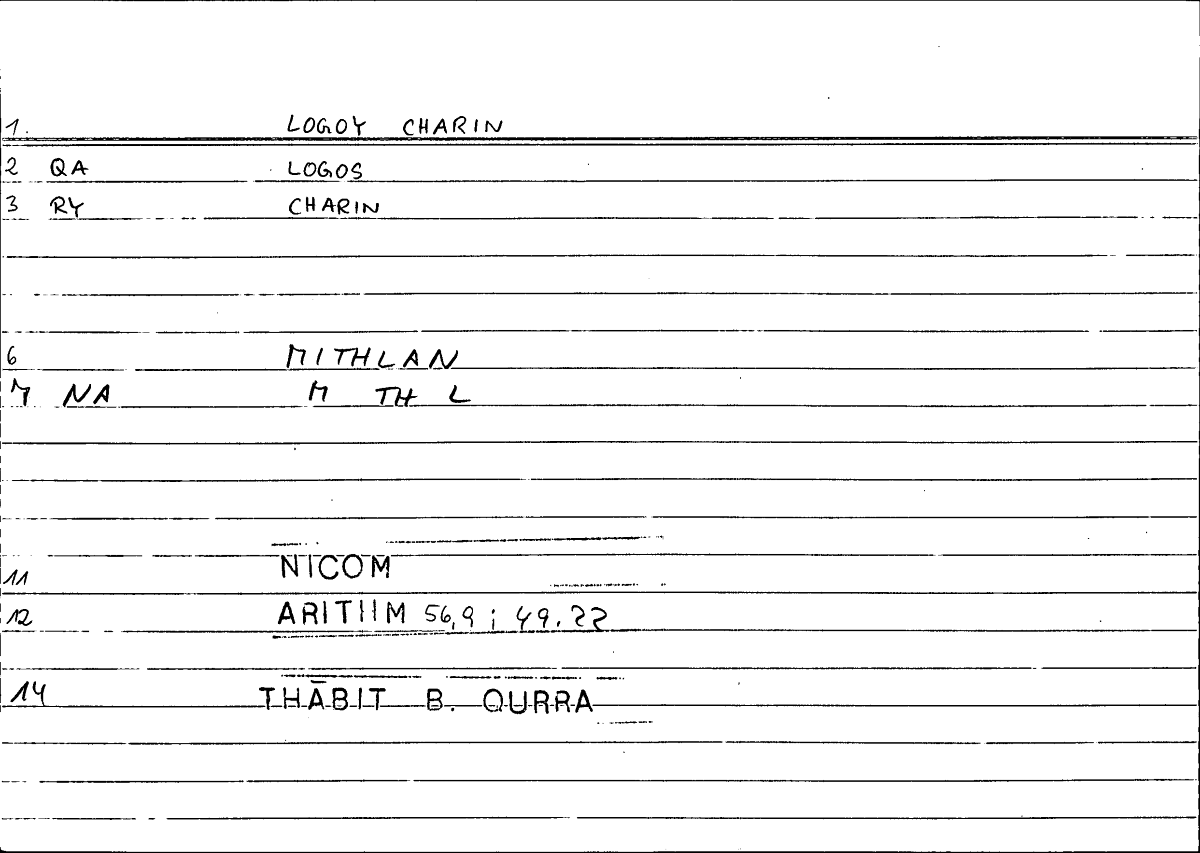 1. LOGOY CHARIN
2 QA LOGOS
3 RY CHARIN
6 MITHLAN
7 NA M TH L
11 NICOM
12 ARITHM 56,9 ; 49.22
14 THĀBIT B. QURRA